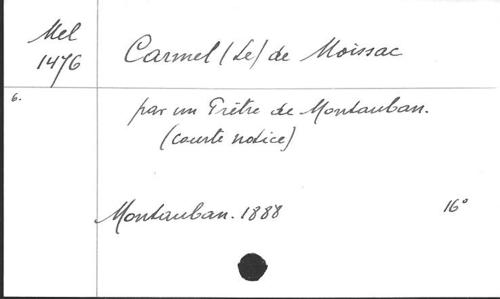 Mel
1476
Carmel (Le) de Moissac
6.
par un Prêtre de Montauban.
(courte notice)
Montauban. 1888
16°